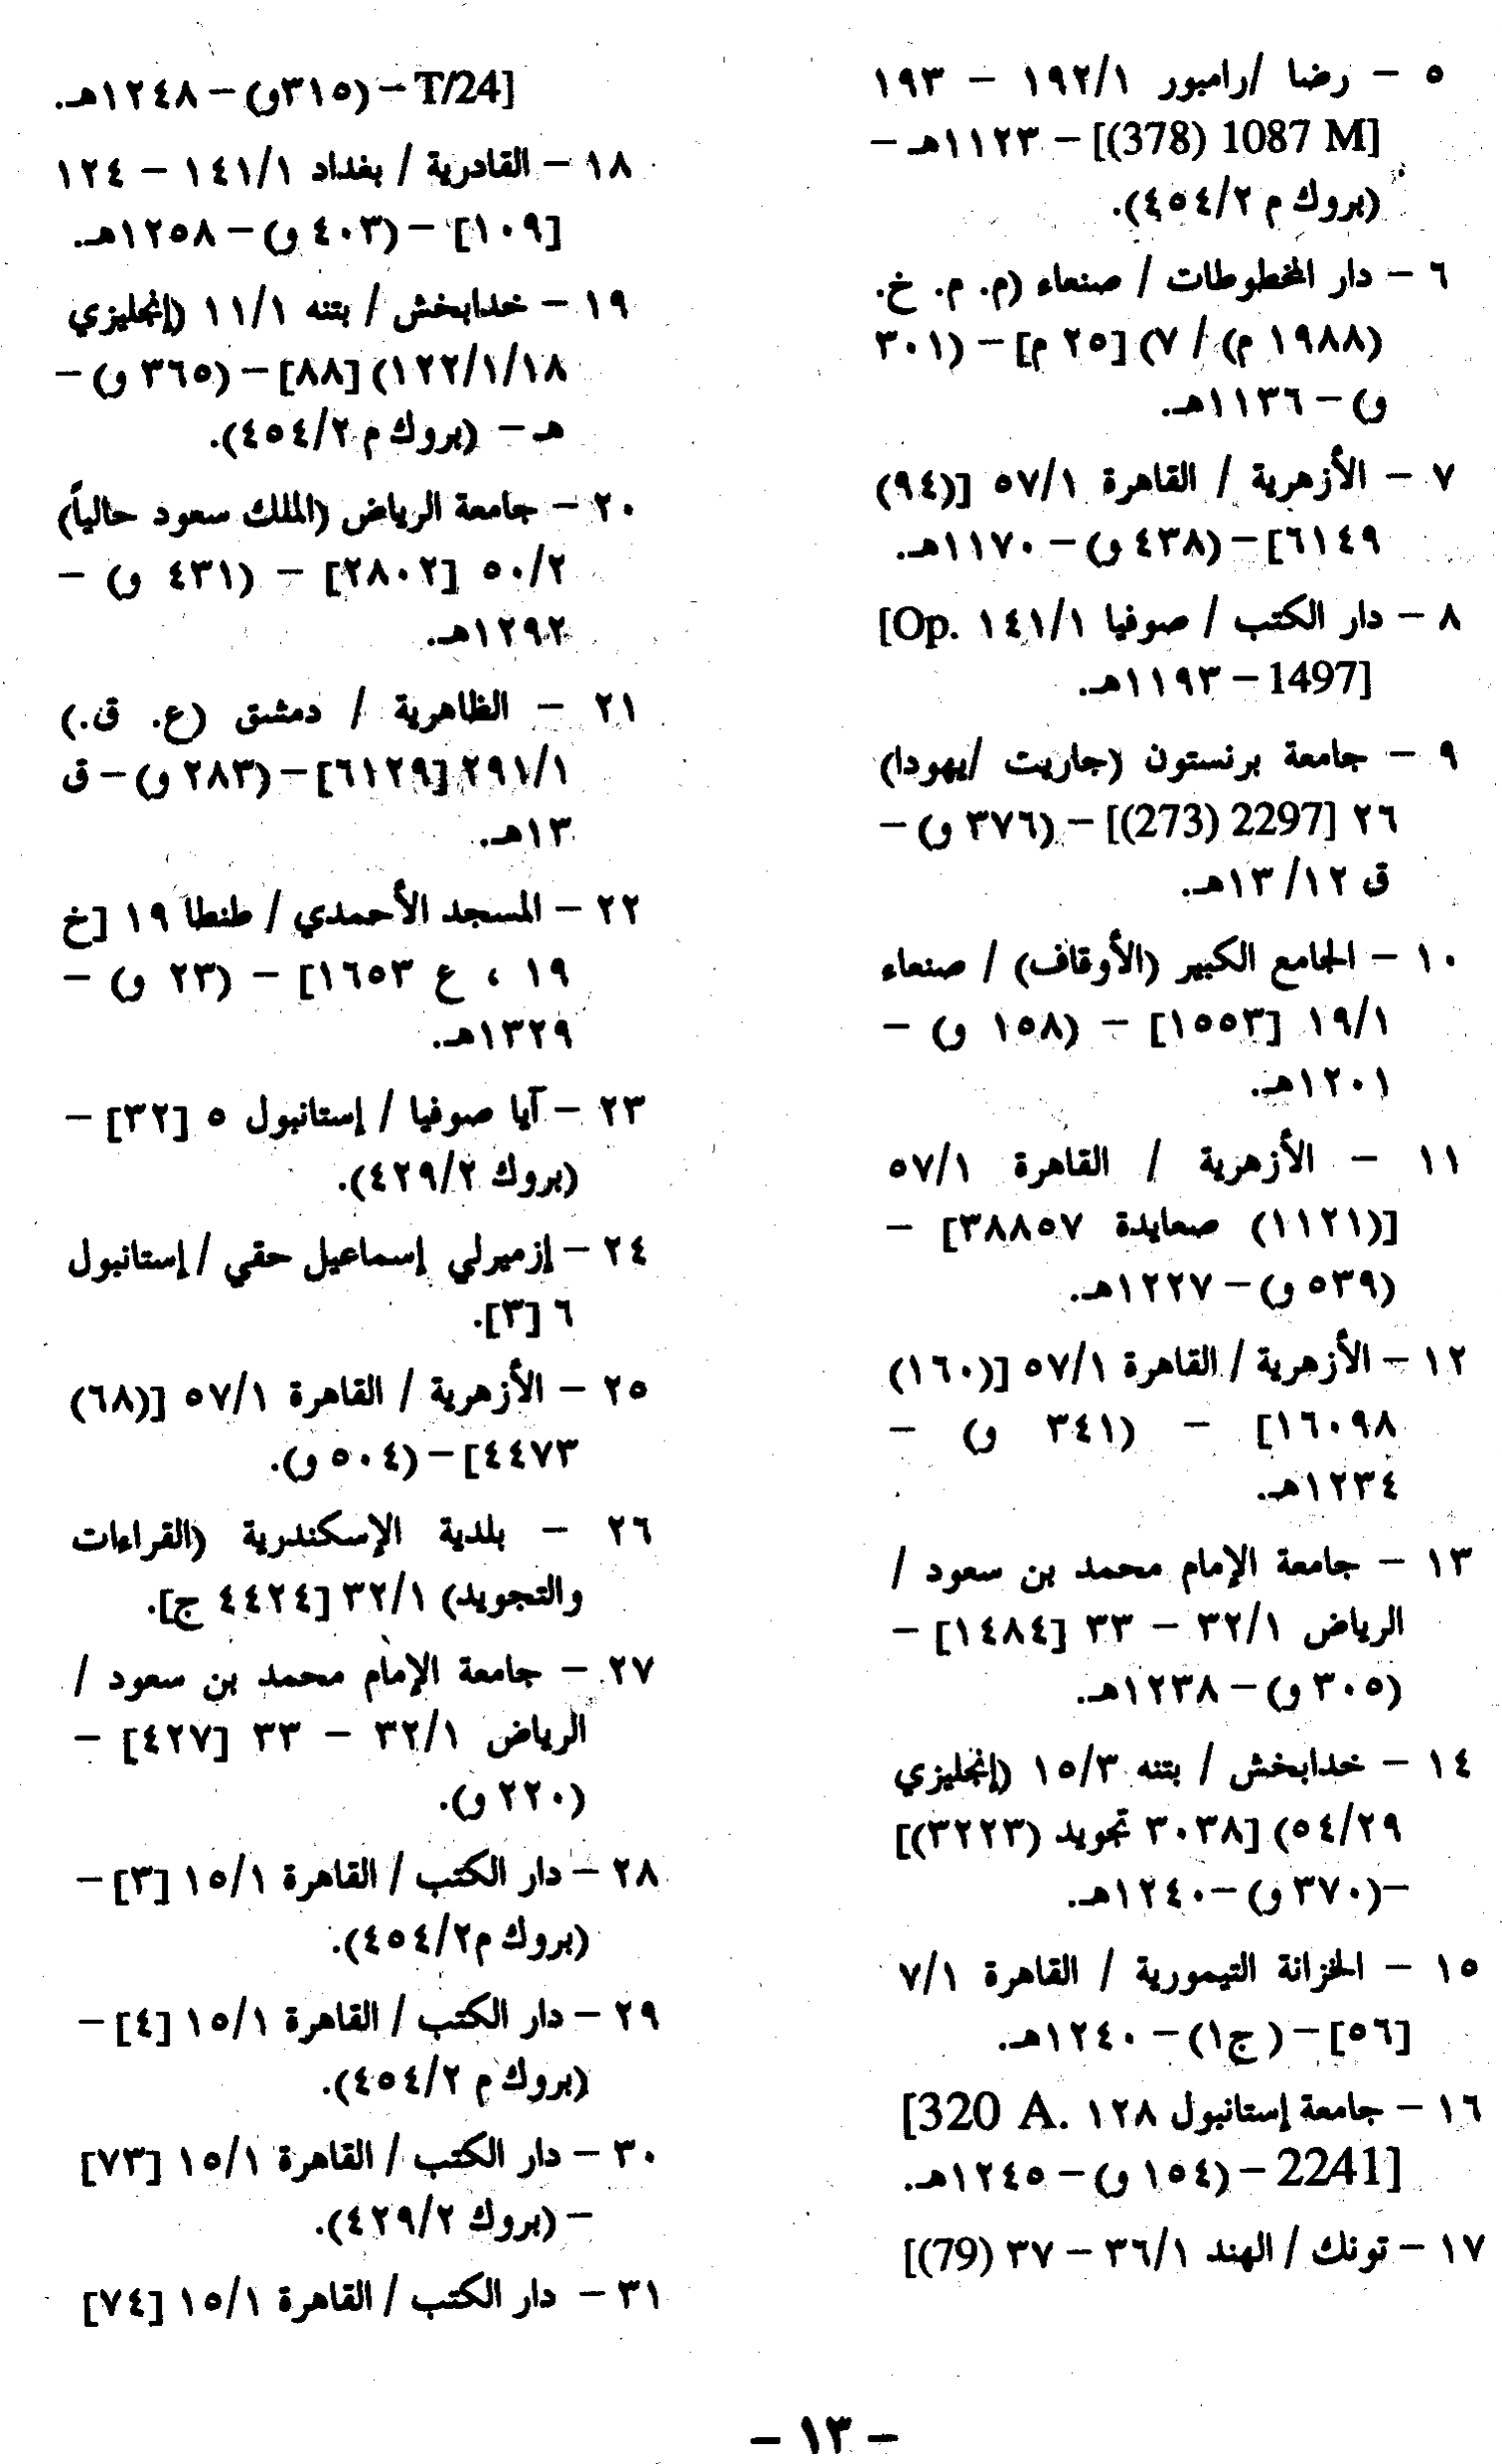 ٥ – رضا /رامبور ١٩٢/١ – ١٩٣
[M 1087 (378)] – ١١٢٣هـ –
(بروك م ٤٥٤/٢).
٦ – دار المخطوطات / صنعاء (م. م. خ.
(١٩٨٨ م) / ٧) [٢٥ م] – (٣٠١
و) – ١١٣٦هـ.
٧ – الأزهرية / القاهرة ٥٧/١ [(٩٤)
٦١٤٩] – (٤٣٨ و) – ١١٧٠هـ.
٨ – دار الكتب / صوفيا ١٤١/١ [Op.
1497] – ١١٩٣هـ.
٩ – جامعة برنستون (جاريت /يهودا)
٢٦ [2297 (273)] – (٣٧٦ و) –
ق ١٢/ ١٣هـ.
١٠ – الجامع الكبير (الأوقاف) / صنعاء
١٩/١ [١٥٥٣] – (١٥٨ و) –
١٢٠١هـ.
١١ – الأزهرية / القاهرة ٥٧/١
[(١١٢١) صعايدة ٣٨٨٥٧] –
(٥٣٩ و) – ١٢٢٧هـ.
١٢ – الأزهرية / القاهرة ٥٧/١ [(١٦٠)
١٦٠٩٨] – (٣٤١ و) –
١٢٣٤هـ.
١٣ – جامعة الإمام محمد بن سعود /
الرياض ٣٢/١ – ٣٣ [١٤٨٤] –
(٣٠٥ و) – ١٢٣٨هـ.
١٤ – خدابخش / بتنه ١٥/٣ (إنجليزي
٥٤/٢٩) [٣٠٣٨ تجويد (٣٢٢٣)]
–(٣٧٠ و) – ١٢٤٠هـ.
١٥ – الخزانة التيمورية / القاهرة ٧/١
[٥٦] – (ج١) – ١٢٤٠هـ.
١٦ – جامعة إستانبول ١٢٨ [320 A.
2241] – (١٥٤ و) – ١٢٤٥هـ.
١٧ – تونك / الهند ٣٦/١ – ٣٧ [(79)
T/24] – (٣١٥و) – ١٢٤٨هـ.
١٨ – القادرية / بغداد ١٤١/١ – ١٢٤
[١٠٩] – (٤٠٣ و) – ١٢٥٨هـ.
١٩ – خدابخش / بتنه ١١/١ (إنجليزي
١٢٢/١/١٨) [٨٨] – (٣٦٥ و) –
هـ – (بروك م ٤٥٤/٢).
٢٠ – جامعة الرياض (الملك سعود حالياً)
٥٠/٢ [٢٨٠٢] – (٤٣١ و) –
١٢٩٢هـ.
٢١ – الظاهرية / دمشق (ع. ق.)
٢٩١/١ [٦١٢٩] – (٢٨٣ و) – ق
١٣هـ.
٢٢ – المسجد الأحمدي / طنطا ١٩ [خ
١٩ ، ع ١٦٥٣] – (٢٣ و) –
١٣٢٩هـ.
٢٣ – آيا صوفيا / إستانبول ٥ [٣٢] –
(بروك ٤٢٩/٢).
٢٤ – إزميرلي إسماعيل حقي / إستانبول
٦ [٣].
٢٥ – الأزهرية / القاهرة ٥٧/١ [(٦٨)
٤٤٧٣] – (٥٠٤ و).
٢٦ – بلدية الإسكندرية (القراءات
والتجويد) ٣٢/١ [٤٤٢٤ ج].
٢٧ – جامعة الإمام محمد بن سعود /
الرياض ٣٢/١ – ٣٣ [٤٢٧] –
(٢٢٠ و).
٢٨ – دار الكتب / القاهرة ١٥/١ [٣] –
(بروك م٤٥٤/٢).
٢٩ – دار الكتب / القاهرة ١٥/١ [٤] –
(بروك م ٤٥٤/٢).
٣٠ – دار الكتب / القاهرة ١٥/١ [٧٣]
– (بروك ٤٢٩/٢).
٣١ – دار الكتب / القاهرة ١٥/١ [٧٤]
– ١٣ –